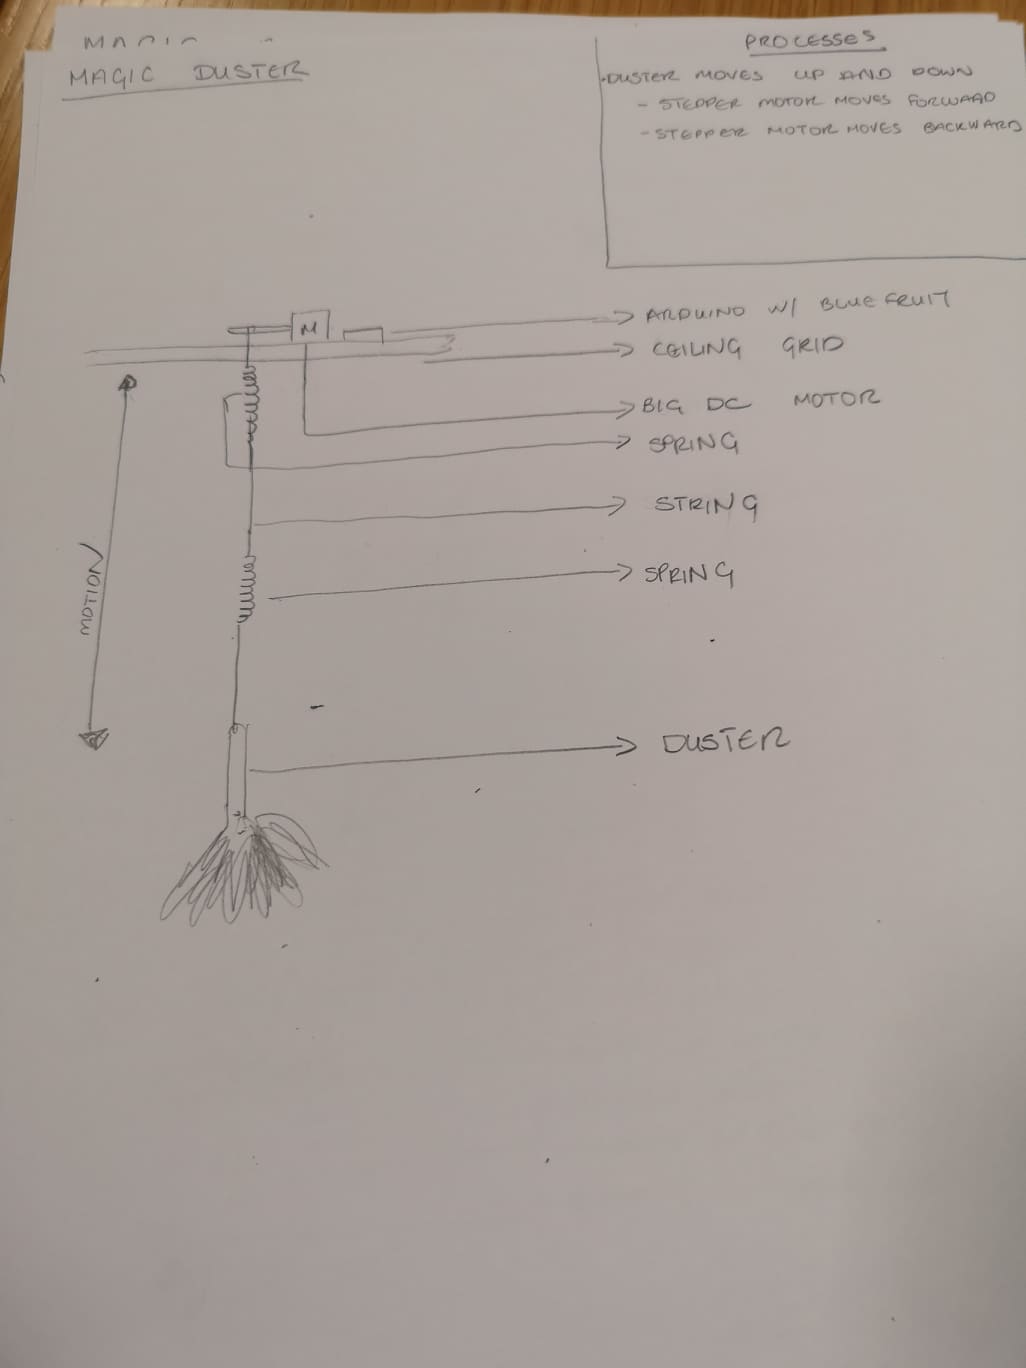 MAGIC DUSTER
PROCESSES
DUSTER MOVES UP AND DOWN
- STEPPER MOTOR MOVES FORWARD
- STEPPER MOTOR MOVES BACKWARD
M
ARDUINO W/ BLUEFRUIT
CEILING GRID
BIG DC MOTOR
SPRING
STRING
SPRING
MOTION
DUSTER